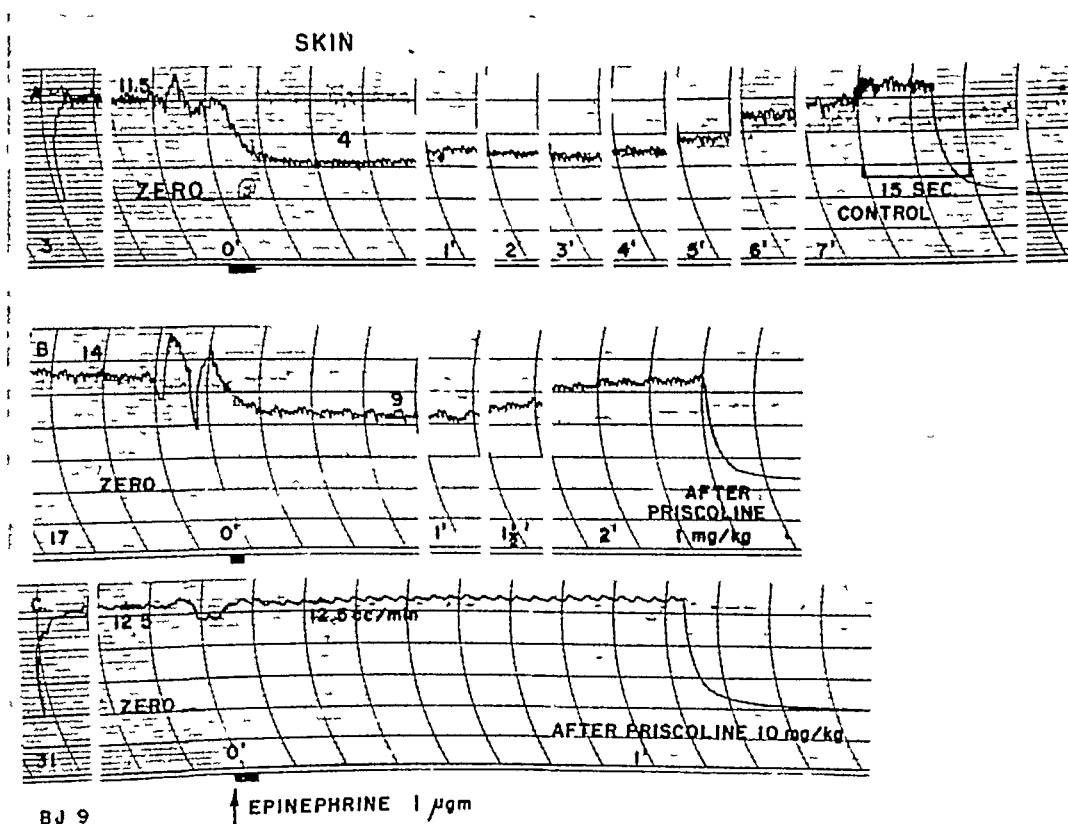 SKIN
11.5
4
ZERO
15 SEC.
CONTROL
3
0'
1'
2
3'
4'
5'
6'
7'
B
14
9
ZERO
AFTER
PRISCOLINE
1 mg/kg
17
0'
1'
1½'
2'
C.
12.5
12.5 cc/min
ZERO
AFTER PRISCOLINE 10 mg/kg
31
0'
1'
EPINEPHRINE 1 µgm
BJ 9